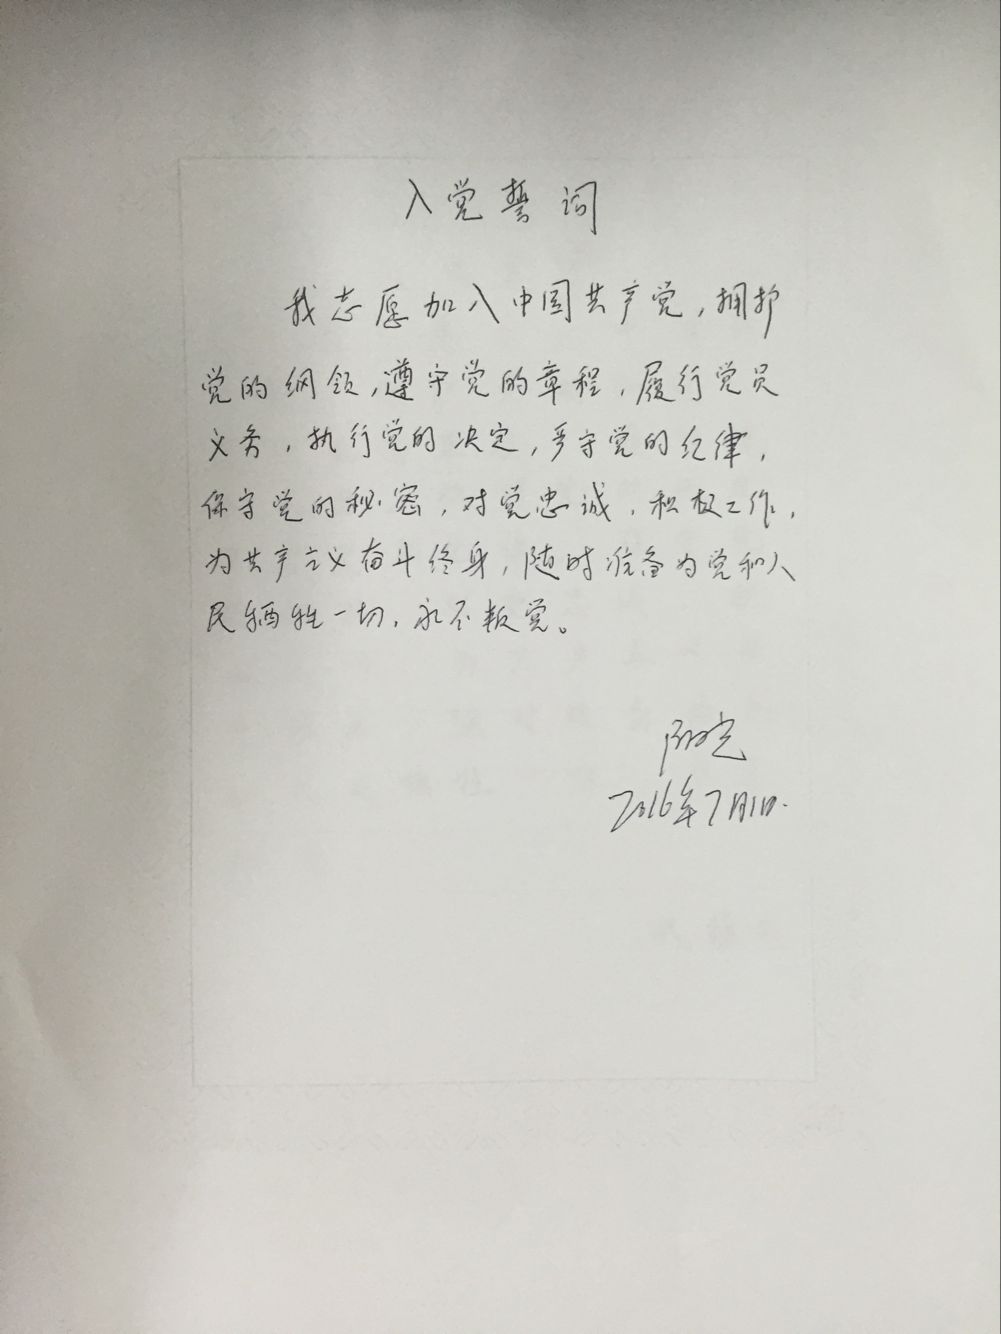 入党誓词
我志愿加入中国共产党,拥护
党的纲领,遵守党的章程,履行党员
义务,执行党的决定,严守党的纪律,
保守党的秘密,对党忠诚,积极工作,
为共产主义奋斗终身,随时准备为党和人
民牺牲一切,永不叛党。
2016年7月1日.